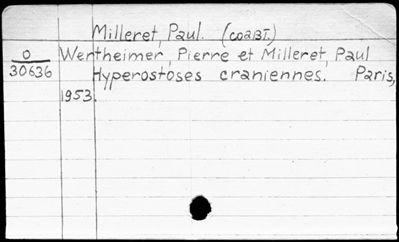 Milleret, Paul. (соавт.)
O Wertheimer, Pierre et Milleret, Paul
30636 Hyperostoses craniennes. Paris,
1953.